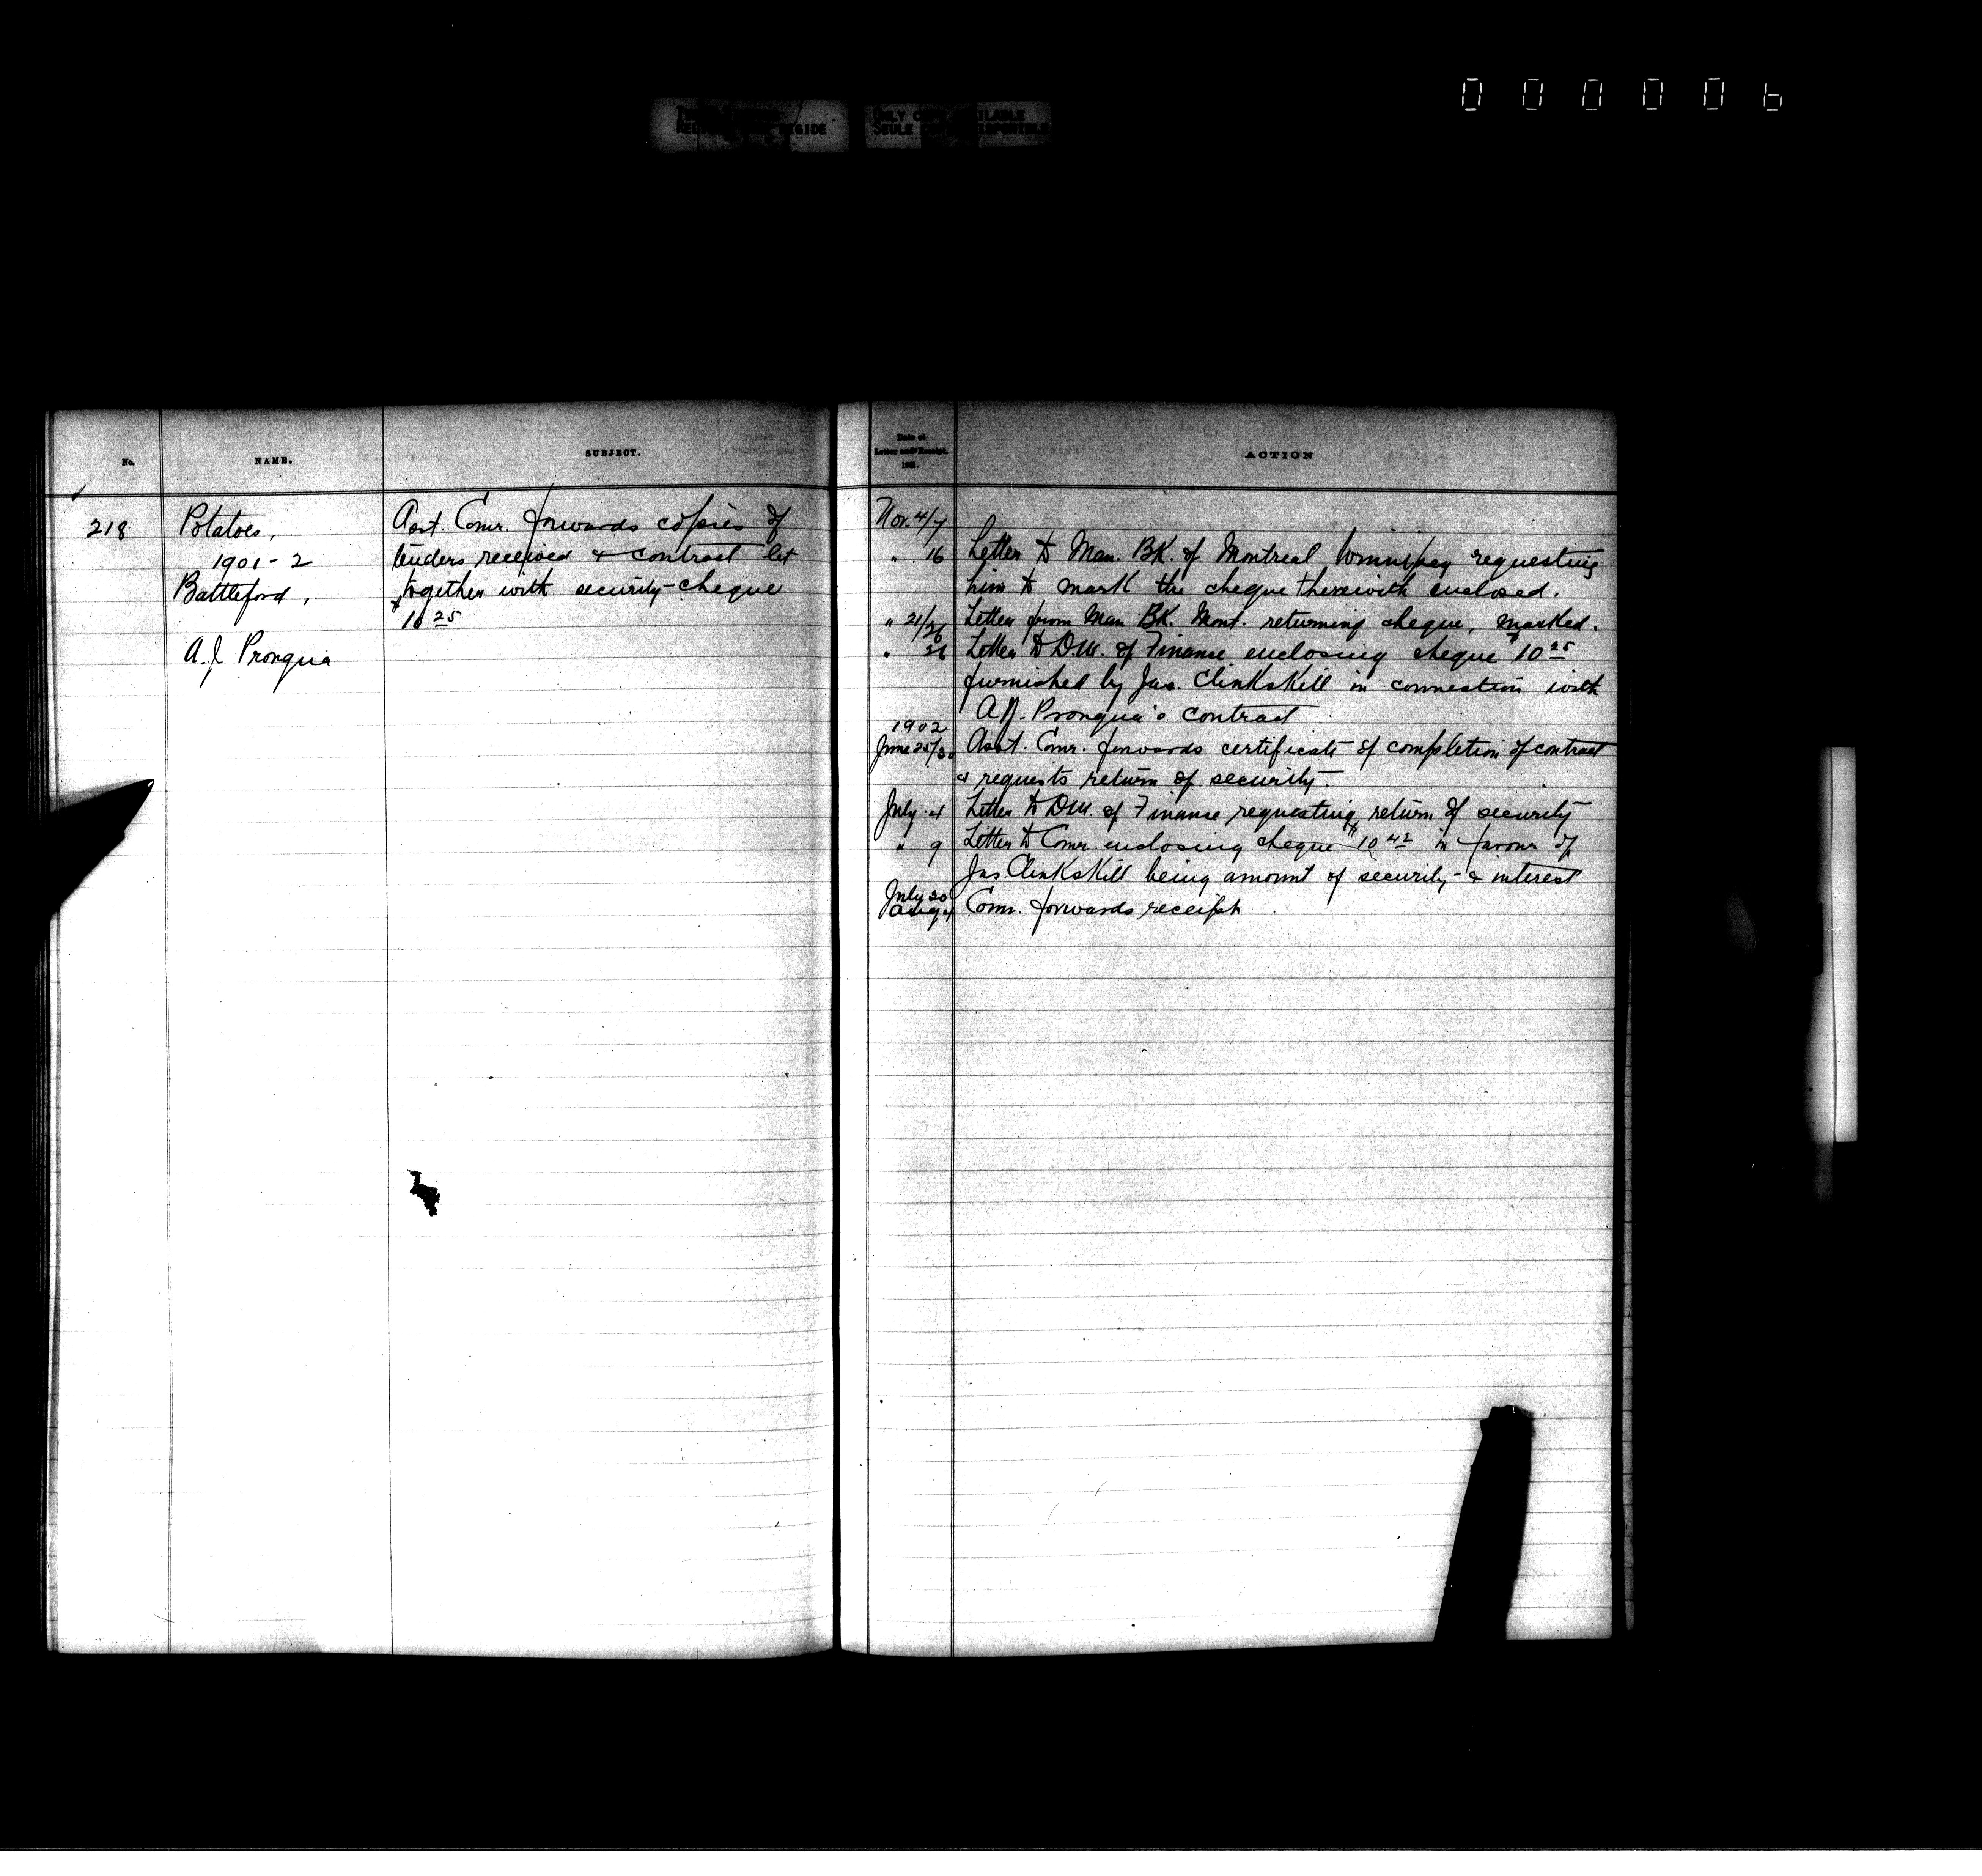 000006
ONLY COPY AVAILABLE
SEULE DISPONIBLE
No. NAME. SUBJECT.
218 Potatoes, Asst. Comr. forwards copies of
1901-2 tenders received & contract let
Battleford, together with security cheque
$10 25
A. J. Prongua
Date of Letter and Receipt, 190 . ACTION
Nov. 4/7
" 16 Letter to Man. BK. of Montreal Winnipeg requesting
him to mark the cheque therewith enclosed.
" 21/26 Letter from Man BK. Mont. returning cheque, marked.
" 26 Letter to D.M. of Finance enclosing cheque $10 25
furnished by Jas. Clinkskill in connection with
A.J. Prongua's contract
1902
June 25/30 Asst. Comr. forwards certificate of completion of contract
& requests return of security.
July 4 Letter to D.M. of Finance requesting return of security
" 9 Letter to Comr. enclosing cheque $10 42 in favour of
Jas. Clinkskill being amount of security & interest
July 30
Aug 4 Comr. forwards receipt.